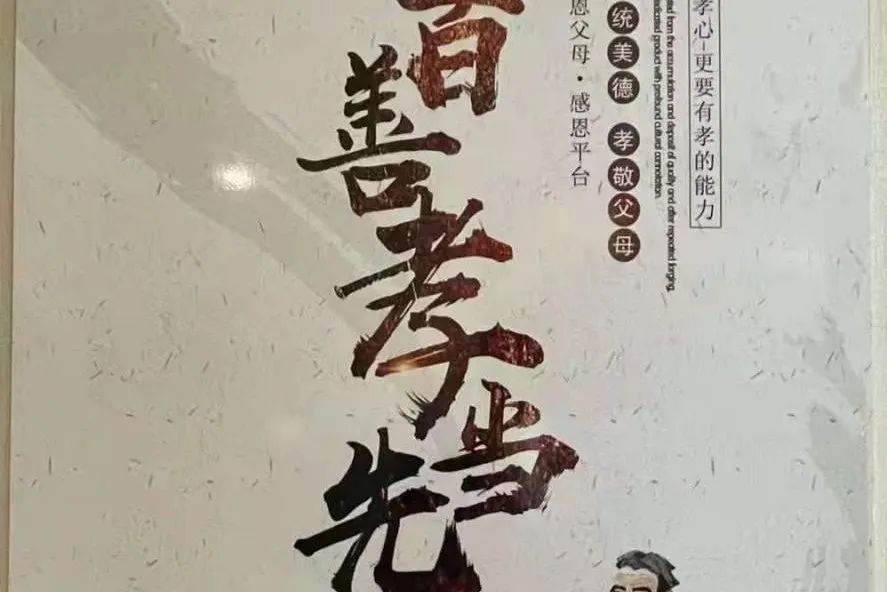 孝心-更要有孝的能力
from the accumulation and deposit of quality and after repeated forging,
product with profound cultural connotation.
统美德 孝敬父母
恩父母·感恩平台
百善孝当先